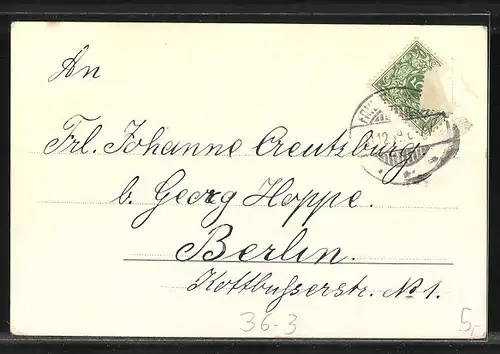 An
Frl. Johanne Creutzburg
b. Georg Hoppe.
Berlin.
Kottbusserstr. No 1.
36-3
5,-